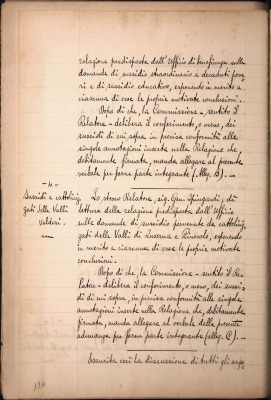 relazione predisposta dall'Ufficio di beneficenza sulle
domande di sussidio straordinario a decaduti pove
ri e di sussidio educativo, esponendo in merito a
ciascuna di esse le proprie motivate conclusioni.
Dopo di che, la Commissione - sentito il
Relatore - delibera il conferimento, o meno, dei
sussidi di cui sopra in precisa conformità alle
singole annotazioni inserte nella Relazione che
debitamente firmata, manda allegare al presente
verbale per farne parte integrante (Alleg. B). —
- 4 -
Sussidi a cattoliz
zati delle Valli
valdesi.
Lo stesso Relatore, sig. Gen. dà
lettura della relazione predisposta dall'Ufficio
sulle domande di sussidio pervenute da cattoliz
zati delle Valli di Luserna e Pinerolo, esponendo
in merito a ciascuna di esse le proprie motivate
conclusioni.
Dopo di che, la Commissione - sentito il Re
latore - delibera il conferimento, o meno, dei sussi
di di cui sopra, in precisa conformità alle singole
annotazioni inserte nella Relazione che, debitamente
firmata, manda allegare al verbale della presente
adunanza per farne parte integrante (alleg. C). —
Esaurita così la discussione di tutti gli ogge